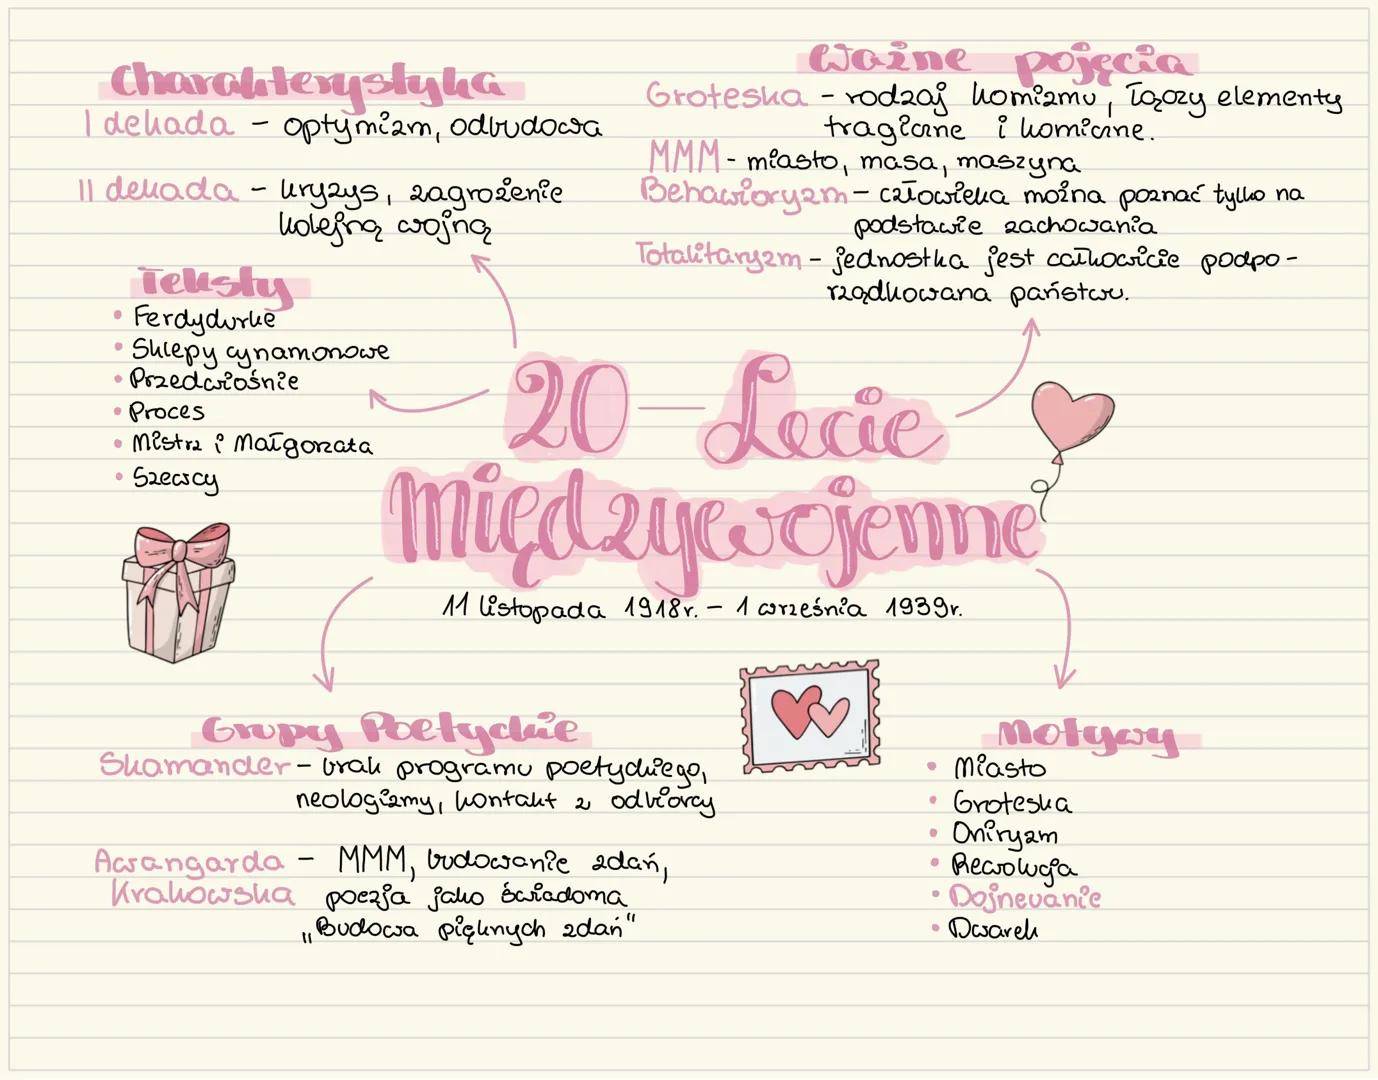 Charakterystyka
I dekada – optymizm, odbudowa
II dekada – kryzys, zagrożenie
kolejną wojną
Ważne pojęcia
Groteska – rodzaj komizmu, łączy elementy
tragiczne i komiczne.
MMM - miasto, masa, maszyna
Behawioryzm – człowieka można poznać tylko na
podstawie zachowania
Totalitaryzm – jednostka jest całkowicie podpo-
rządkowana państwu.
Teksty
• Ferdydurke
• Sklepy cynamonowe
• Przedwiośnie
• Proces
• Mistrz i Małgorzata
• Szewcy
20 — Lecie
Międzywojenne
11 listopada 1918r. – 1 września 1939r.
Grupy Poetyckie
Skamander – brak programu poetyckiego,
neologizmy, kontakt z odbiorcy
Awangarda – MMM, budowanie zdań,
Krakowska poezja jako świadoma
„Budowa pięknych zdań"
Motywy
• Miasto
• Groteska
• Oniryzm
• Rewolucja
• Dojrzewanie
• Dworek